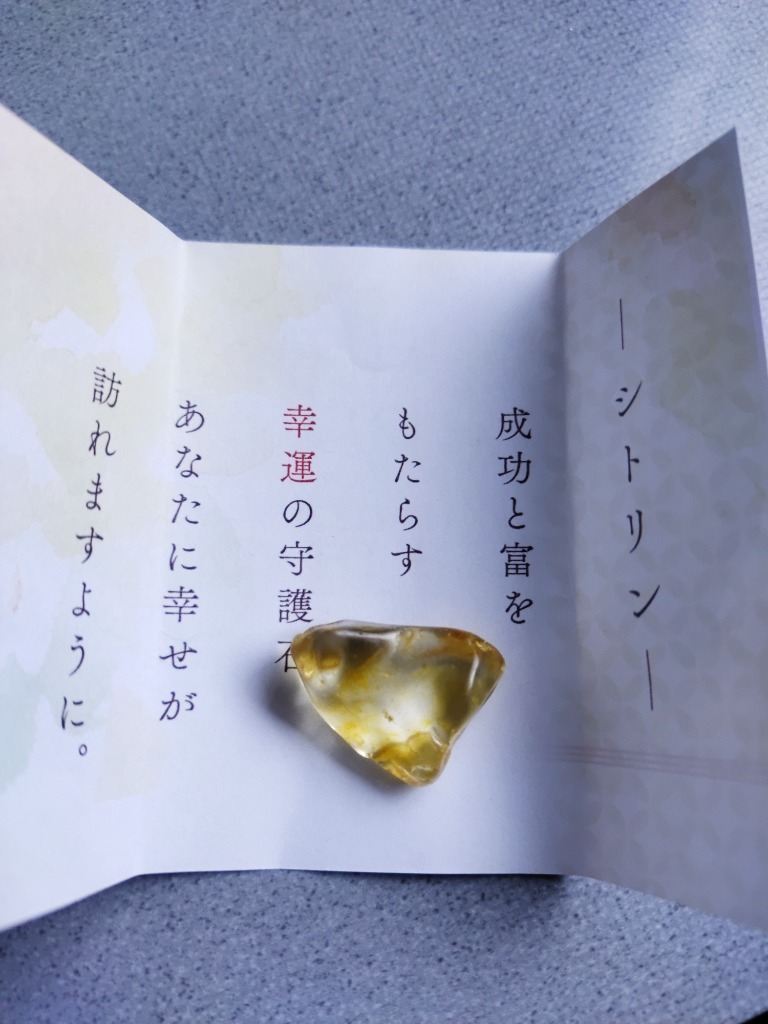 ―シトリン―
成功と富を
もたらす
幸運の守護石
あなたに幸せが
訪れますように。